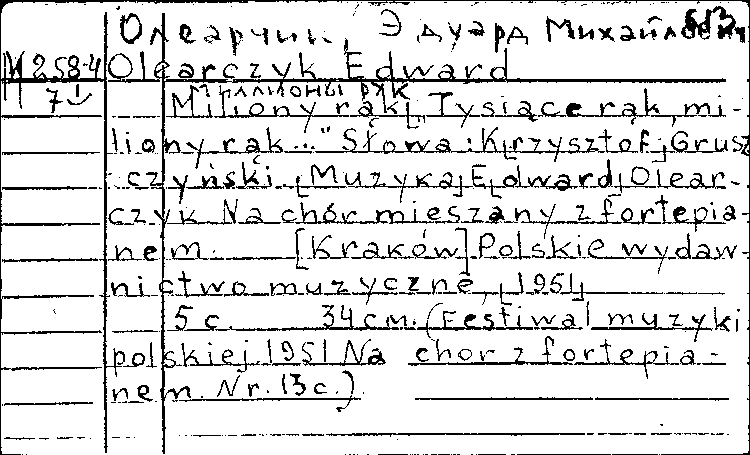 Олеарчик, Эдуард Михайлович
М 258-4 Olearczyk Edward
Миллионы рук
7 Miliony rąk[„Tysiące rąk, mi-
liony rąk..." Słowa: K[rzysztof] Grusz
czyński. [Muzyka] E[dward] Olear-
czyk Na chór mieszany z fortepia-
nem. [Kraków] Polskie wydaw-
nictwo muzyczne, [1951]
5 c. 34 см. (Festiwal muzyki
polskiej 1951 Na chor z fortepia-
nem. Nr. 13 c.)